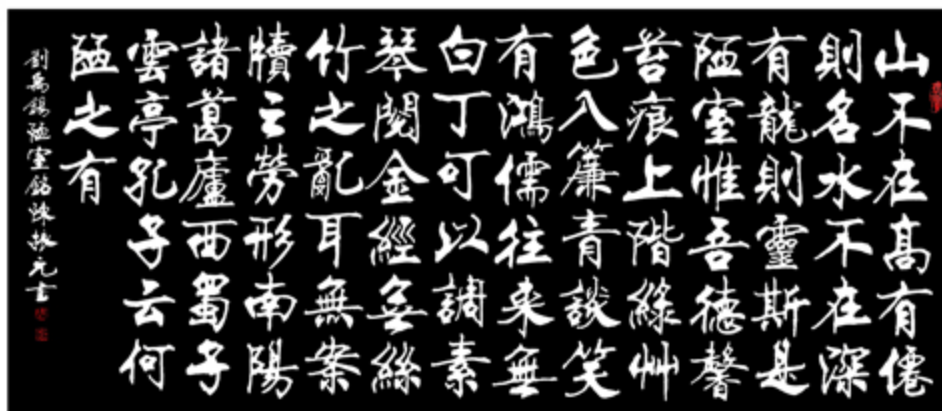 山不在高有僊
則名水不在深
有龍則靈斯是
陋室惟吾德馨
苔痕上階綠艸
色入簾青談笑
有鴻儒往来無
白丁可以調素
琴閱金經無絲
竹之亂耳無案
牘之勞形南陽
諸葛廬西蜀子
雲亭孔子云何
陋之有
劉禹錫陋室銘